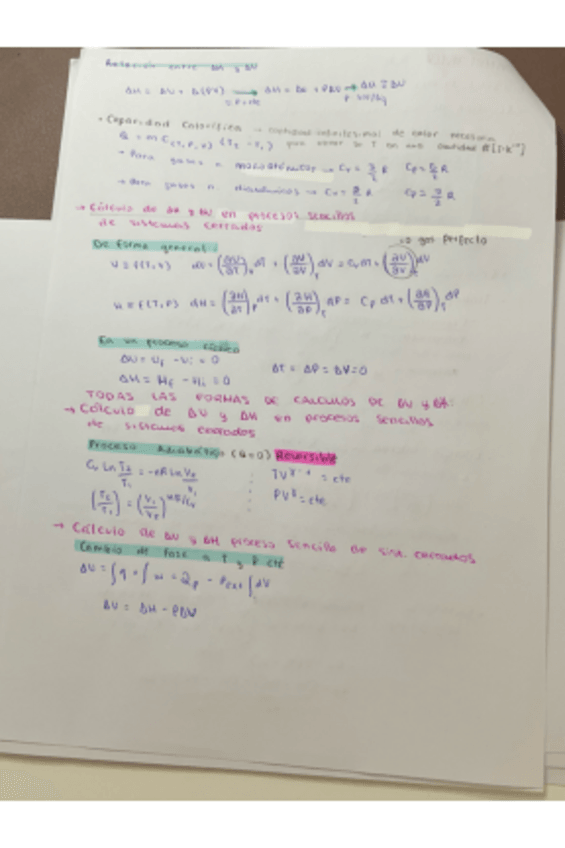 Relación entre ΔH y ΔU
ΔH = ΔU + Δ(PV) → ΔH = ΔU + PΔV → ΔH ≅ ΔU
P = cte
• Capacidad Calorífica → cantidad infinitesimal de calor necesaria
Q = m C(T, P, x) (T2 - T1) para elevar su T en una cantidad [J·K⁻¹]
→ Para gases monoatómicos → Cv = 3/2 R Cp = 5/2 R
→ Para gases diatómicos → Cv = 5/2 R Cp = 7/2 R
→ Cálculo de ΔH y ΔU en procesos sencillos
de sistemas cerrados
De forma general: =0 gas perfecto
U = f(T, V) dU = (∂U/∂T)v dT + (∂U/∂V)T dV = Cv dT + (∂U/∂V)T dV
H = f(T, P) dH = (∂H/∂T)P dT + (∂H/∂P)T dP = Cp dT + (∂H/∂P)T dP
En un proceso cíclico
ΔU = Uf - Ui = 0
ΔT = ΔP = ΔV = 0
ΔH = Hf - Hi = 0
TODAS LAS FORMAS DE CALCULOS DE ΔU y ΔH:
→ Cálculo de ΔU y ΔH en procesos sencillos
de sistemas cerrados
Proceso Adiabático (Q=0) Reversible
Cv Ln T2/T1 = -nR Ln V2/V1 TV^γ-1 = cte
(T2/T1) = (V1/V2)^nR/Cv PV^γ = cte
→ Cálculo de ΔU y ΔH proceso sencillo de sist. cerrados
Cambio de fase a T y P cte
ΔU = ∫q + ∫w = Qp - Pext ∫dV
ΔU = ΔH - PΔV